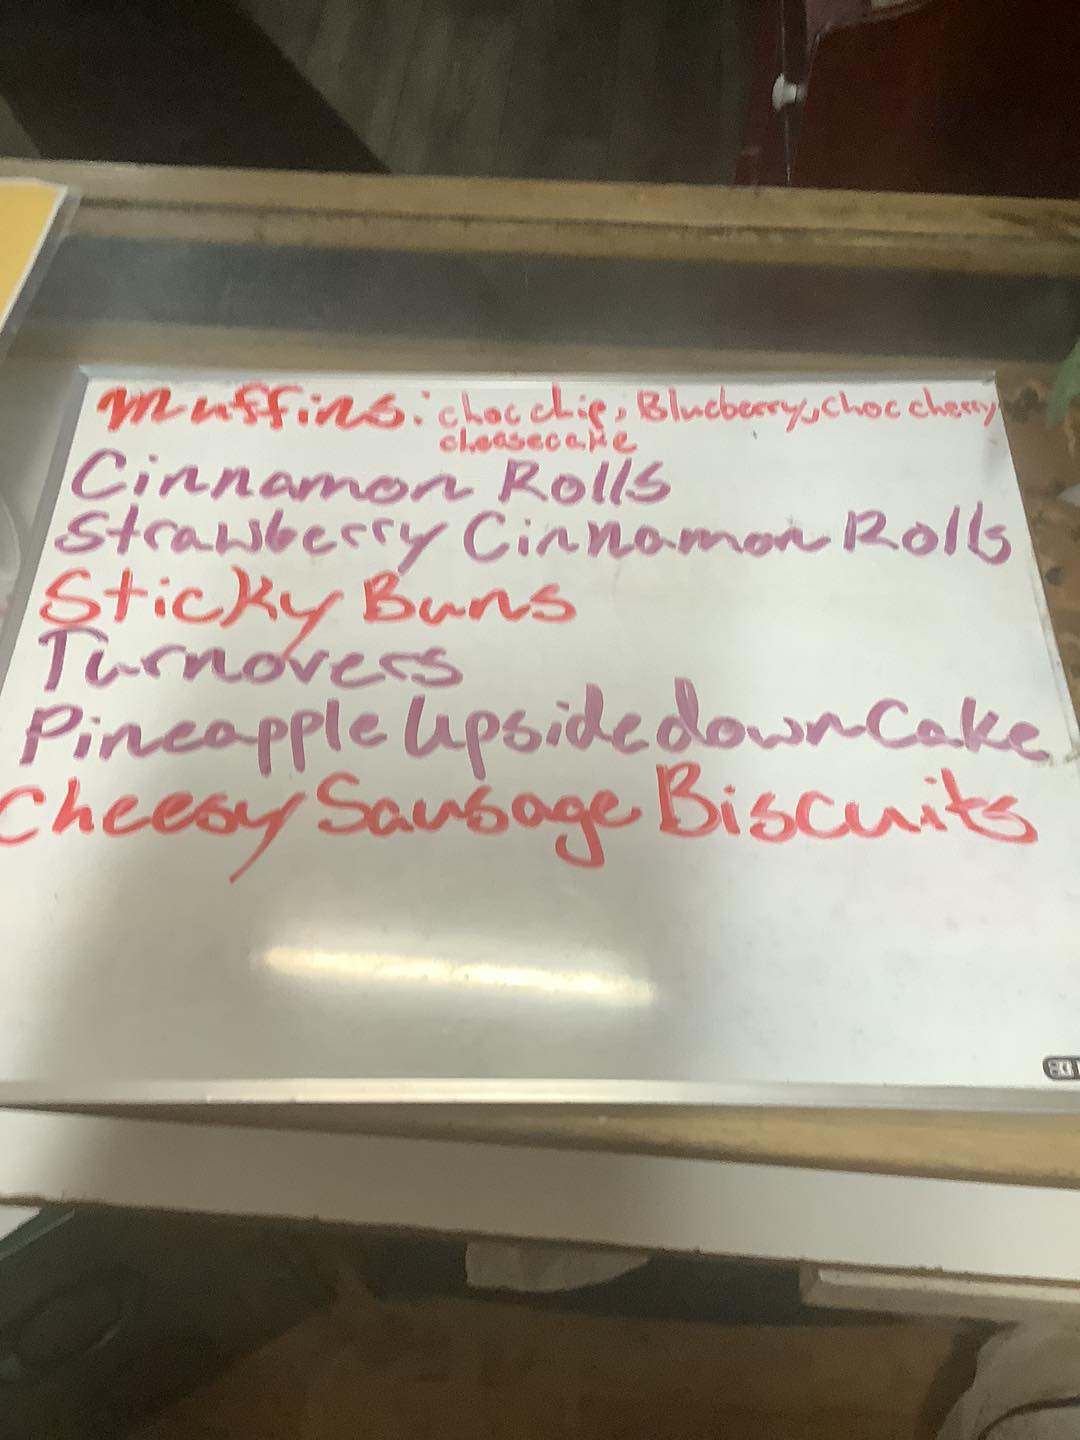 Muffins: choc chip, Blueberry, choc cherry
cheesecake
Cinnamon Rolls
Strawberry Cinnamon Rolls
Sticky Buns
Turnovers
Pineapple Upside down Cake
Cheesy Sausage Biscuits